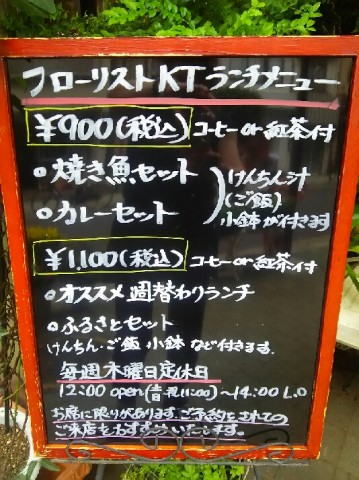 フローリストKTランチメニュー
¥900(税込) コーヒーor紅茶付
○焼き魚セット
○カレーセット
けんちん汁
(ご飯)
小鉢が付きます
¥1,100(税込) コーヒーor紅茶付
○オススメ週替わりランチ
○ふるさとセット
けんちん・ご飯 小鉢 など付きます。
毎週木曜日定休日
12:00 open( 11:00)~14:00 L.O
お席に限りがあります。ご予約をされての
ご来店をおすすめいたします。